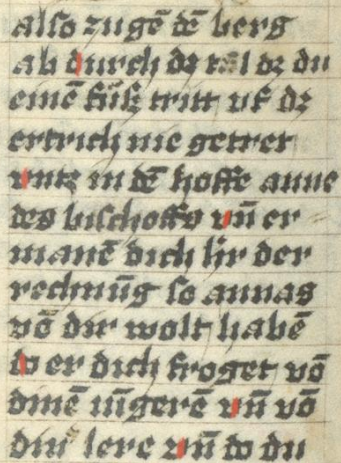 also zugē dē berg
ab durch dz tal dz du
einē fůsz tritt uf dz
ertrich nie getret
untz in dē hoffe anne
des bischoffs uñ er
manē dich hir der
rechnūg so annas
vō dir wolt habē
do er dich froget vō
dinē iūgerē uñ vō
din lere uñ do du